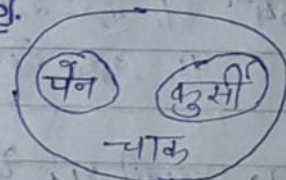 पेन
कुर्सी
चाक